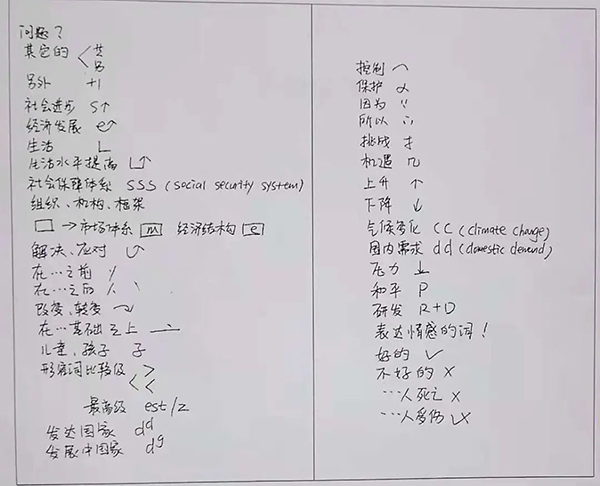 问题?
其它的 < 其 另
另外 +1
社会进步 S↑
经济发展 e↑
生活 L
生活水平提高 L↑
社会保障体系 SSS (social security system)
组织、机构、框架
□ → 市场体系 m 经济结构 e
解决、应对
在…之前
在…之后
改变、转变
在…基础之上
儿童、孩子 子
形容词比较级 >
<<
最高级 est/z
发达国家 dd
发展中国家 dg
控制
保护
因为 ∵
所以 ∴
挑战 才
机遇 几
上升 ↑
下降 ↓
气候变化 CC (climate change)
国内需求 dd (domestic demand)
压力 ↓
和平 P
研发 R+D
表达情感的词!
好的 ✓
不好的 ×
…人死亡 ×
…人受伤